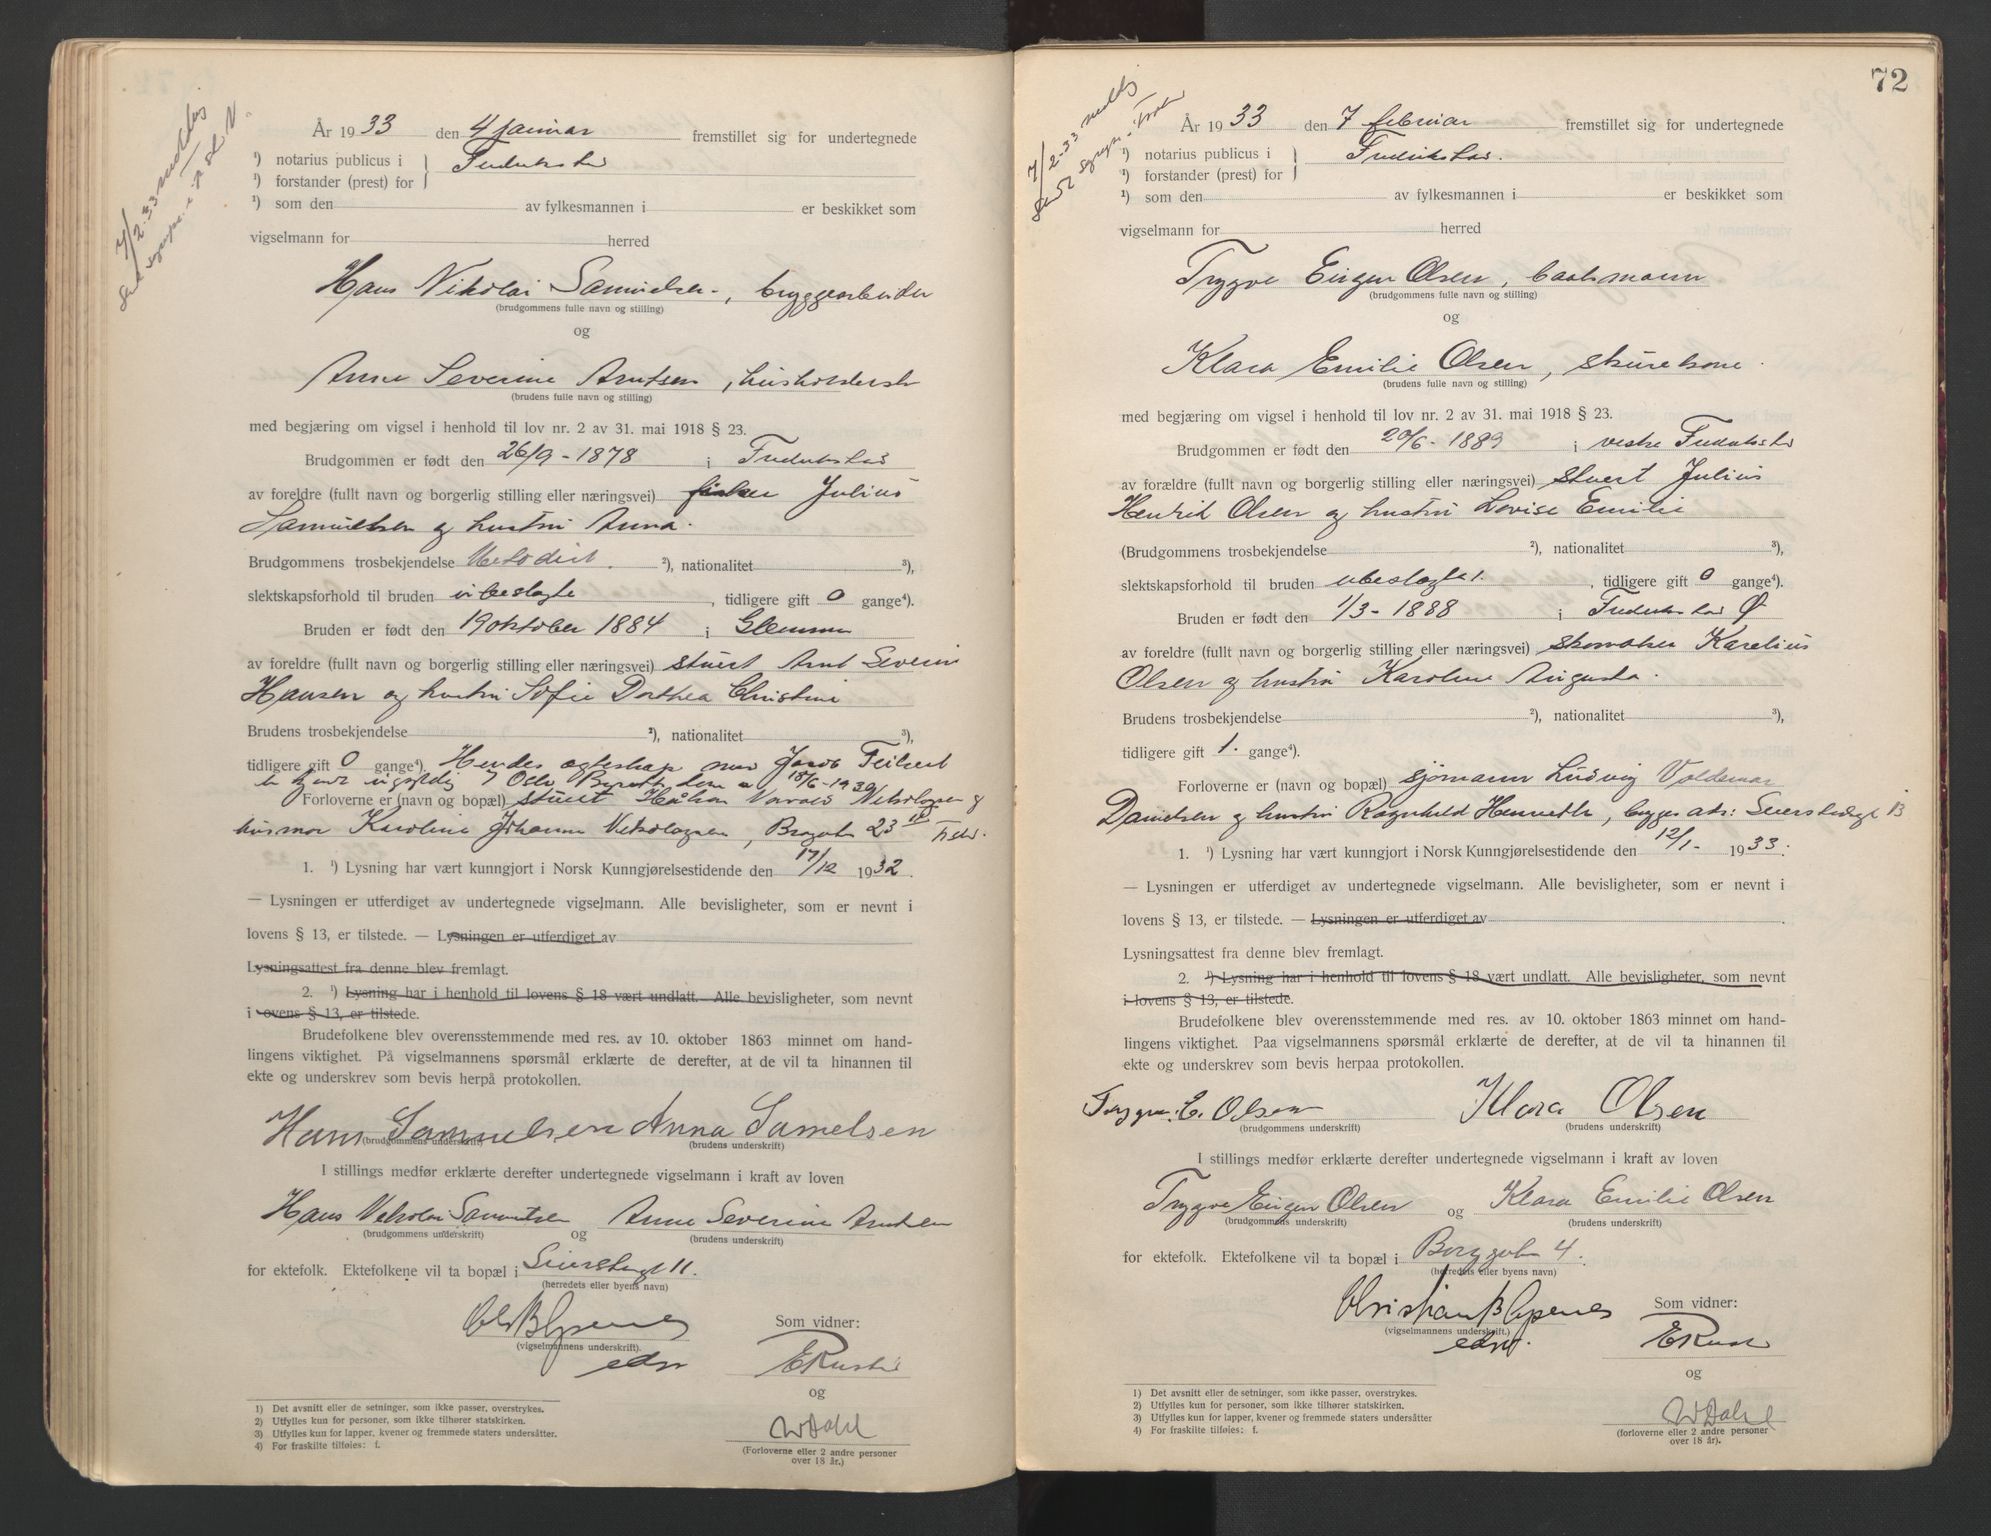 7/2-33 meldt
År 1933 den 4 januar fremstillet sig for undertegnede
¹) notarius publicus i } Fredrikstad
¹) forstander (prest) for
¹) som den av fylkesmannen i er beskikket som
vigselmann for herred
Hans Nikolai Samuelsen, bryggearbeider
(brudgommens fulle navn og stilling)
og
Anne Severine Arntsen, husholderske
(brudens fulle navn og stilling)
med begjæring om vigsel i henhold til lov nr. 2 av 31. mai 1918 § 23.
Brudgommen er født den 26/9-1878 i Fredrikstad
av foreldre (fullt navn og borgerlig stilling eller næringsvei) fisker Julius
Samuelsen og hustru Anna.
Brudgommens trosbekjendelse Metodist. ²), nationalitet ³),
slektskapsforhold til bruden ubeslagte, tidligere gift 0 gange⁴).
Bruden er født den 19 oktober 1884 i Glemmen
av foreldre (fullt navn og borgerlig stilling eller næringsvei) stuert Arnt Severin
Hansen og hustru Sofie Dorthea Christine
Brudens trosbekjendelse ²), nationalitet ³),
tidligere gift 0 gange⁴). Hendes egteskap med Jacob
er kjendt ugyldig Oslo Byrett dom av 18/6-1930
Forloverne er (navn og bopæl) stuert Håkon Nikolaysen &
husmor Karoline Johanne Nikolaysen, 23 Fr.stad.
1. ¹) Lysning har vært kunngjort i Norsk Kunngjørelsestidende den 17/12 1932.
— Lysningen er utferdiget av undertegnede vigselmann. Alle bevisligheter, som er nevnt i
lovens § 13, er tilstede. — Lysningen er utferdiget av
Lysningsattest fra denne blev fremlagt.
2. ¹) Lysning har i henhold til lovens § 18 vært undlatt. Alle bevisligheter, som nevnt
i lovens § 13, er tilstede.
Brudefolkene blev overensstemmende med res. av 10. oktober 1863 minnet om hand-
lingens viktighet. På vigselmannens spørsmål erklærte de derefter, at de vil ta hinannen til
ekte og underskrev som bevis herpå protokollen.
Hans Samuelsen Anna Samelsen
(brudgommens underskrift) (brudens underskrift)
I stillings medfør erklærte derefter undertegnede vigselmann i kraft av loven
Hans Nikolai Samuelsen og Anne Severine Arntsen
(brudgommens underskrift) (brudens underskrift)
for ektefolk. Ektefolkene vil ta bopæl i Seierstengt 11.
(herredets eller byens navn)
(vigselmannens underskrift).
edsv
Som vidner:
E Rustad
og
W Dahl
(Forloverne eller 2 andre personer
over 18 år.)
1) Det avsnitt eller de setninger, som ikke passer, overstrykes.
2) Utfylles kun for personer, som ikke tilhører statskirken.
3) Utfylles kun for lapper, kvener og fremmede staters undersåtter.
4) For fraskilte tilføies: f.
72
7/2-33 meldt
År 1933 den 7 februar fremstillet sig for undertegnede
¹) notarius publicus i } Fredrikstad.
¹) forstander (prest) for
¹) som den av fylkesmannen i er beskikket som
vigselmann for herred
Trygve Eugen Olsen, baatsmann
(brudgommens fulle navn og stilling)
og
Klara Emilie Olsen, skurekone.
(brudens fulle navn og stilling)
med begjæring om vigsel i henhold til lov nr. 2 av 31. mai 1918 § 23.
Brudgommen er født den 20/6-1889 i vestre Fredrikstad
av forældre (fullt navn og borgerlig stilling eller næringsvei) stuert Julius
Henrik Olsen og hustru Lovise Emilie
(Brudgommens trosbekjendelse ²), nationalitet ³),
slektskapsforhold til bruden ubeslagtet, tidligere gift 0 gange⁴).
Bruden er født den 1/3-1888 i Fredrikstad Ø
av foreldre (fullt navn og borgerlig stilling eller næringsvei) skomaker Karelius
Olsen og hustru Karoline Augusta.
Brudens trosbekjendelse ²), nationalitet ³),
tidligere gift 1. gange⁴).
Forloverne er (navn og bopæl) sjømann Ludvig Valdemar
Danielsen og hustru Ragnhild Henriette, begges adr: 13
1. ¹) Lysning har vært kunngjort i Norsk Kunngjørelsestidende den 12/1- 1933.
— Lysningen er utferdiget av undertegnede vigselmann. Alle bevisligheter, som er nevnt i
lovens § 13, er tilstede. — Lysningen er utferdiget av
Lysningsattest fra denne blev fremlagt.
2. ¹) Lysning har i henhold til lovens § 18 vært undlatt. Alle bevisligheter, som nevnt
i lovens § 13, er tilstede.
Brudefolkene blev overensstemmende med res. av 10. oktober 1863 minnet om hand-
lingens viktighet. Paa vigselmannens spørsmål erklærte de derefter, at de vil ta hinannen til
ekte og underskrev som bevis herpaa protokollen.
Trygve E. Olsen Klara Olsen
(brudgommens underskrift) (brudens underskrift)
I stillings medfør erklærte derefter undertegnede vigselmann i kraft av loven
Trygve Eugen Olsen og Klara Emilie Olsen
(brudgommens underskrift) (brudens underskrift)
for ektefolk. Ektefolkene vil ta bopæl i 4.
(herredets eller byens navn)
Christian B
(vigselmannens underskrift.)
edsv.
Som vidner:
E Rustad
og
W Dahl
(forloverne eller 2 andre personer
over 18 år).
1) Det avsnitt eller de setninger, som ikke passer, overstrykes.
2) Utfylles kun for personer, som ikke tilhører statskirken.
3) Utfylles kun for lapper, kvener og fremmede staters undersåtter
4) For fraskilte tilføies: f.